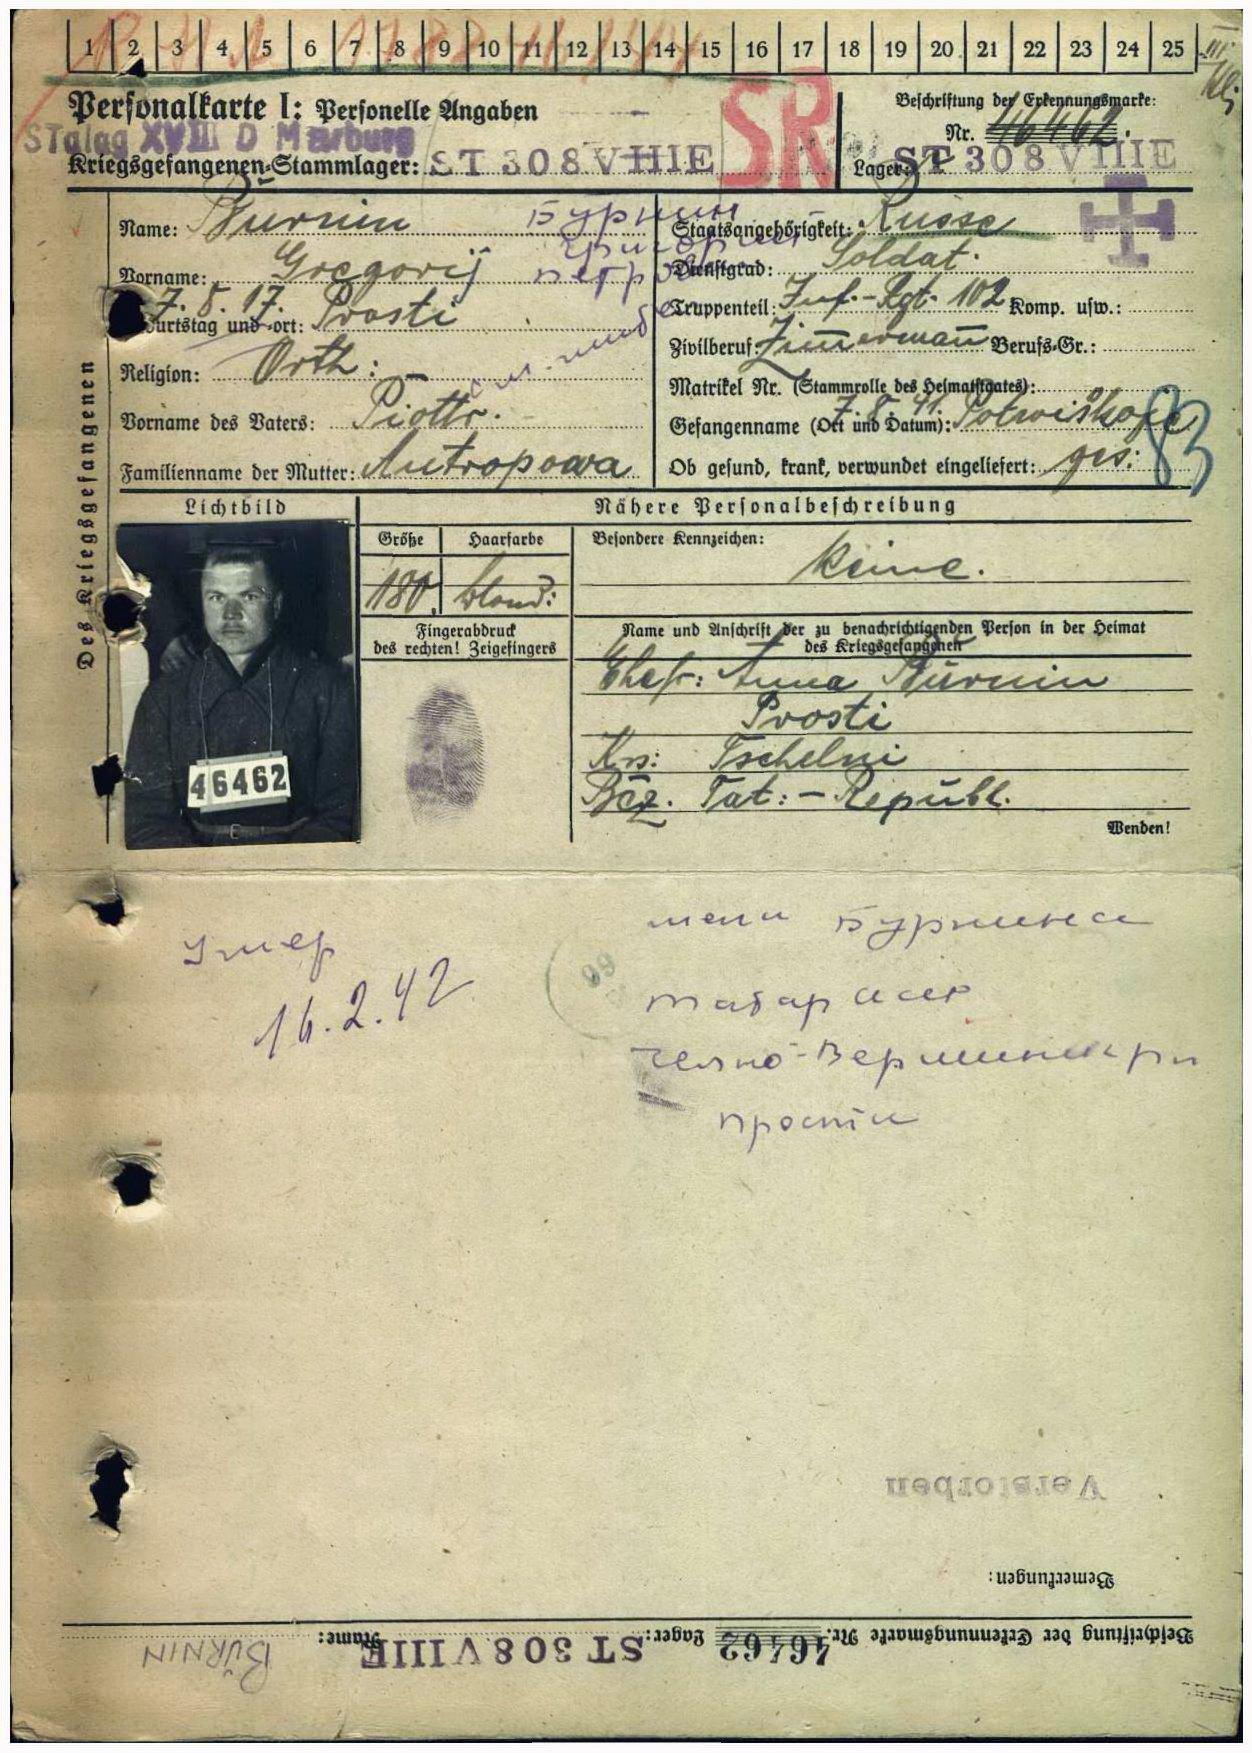 1 2 3 4 5 6 7 8 9 10 11 12 13 14 15 16 17 18 19 20 21 22 23 24 25
III.
Personalkarte I: Personelle Angaben
Stalag XVIII D Marburg
Kriegsgefangenen-Stammlager: ST 308 VIIIE
SR
Beschriftung der Erkennungsmarke:
Nr. 46462.
Lager: ST 308 VIIIE
Des Kriegsgefangenen
Name: Burnin
Бурнин
Vorname: Gregorij
Григорий
Петрович
7. 8. 17. Prosti
burtstag und -ort:
Religion: Orth:
Vorname des Vaters: Piottr.
Familienname der Mutter: Antropowa
Staatsangehörigkeit: Russe
Dienstgrad: Soldat.
Truppenteil: Inf.-Rgt. 102 Komp. usw.:
Zivilberuf: Zimmermann Berufs-Gr.:
Matrikel Nr. (Stammrolle des Heimatstaates):
Gefangenname (Ort und Datum): 7. 8. 41.
Ob gesund, krank, verwundet eingeliefert: ges:
83
Lichtbild
Nähere Personalbeschreibung
Größe Haarfarbe
180. blond:
Besondere Kennzeichen:
keine.
Fingerabdruck
des rechten! Zeigefingers
Name und Anschrift der zu benachrichtigenden Person in der Heimat
des Kriegsgefangenen
Ehefr: Anna Burnin
Prosti
Krs: Tschelni
Bez. Tat: - Republ.
46462
Wenden!
Умер
16.2.42
99
Бурнина
Татар
Прости
Verstorben
Bemerkungen:
Beschriftung der Erkennungsmarke Nr. 46462 Lager: ST 308 VIIIE Name: BURNIN